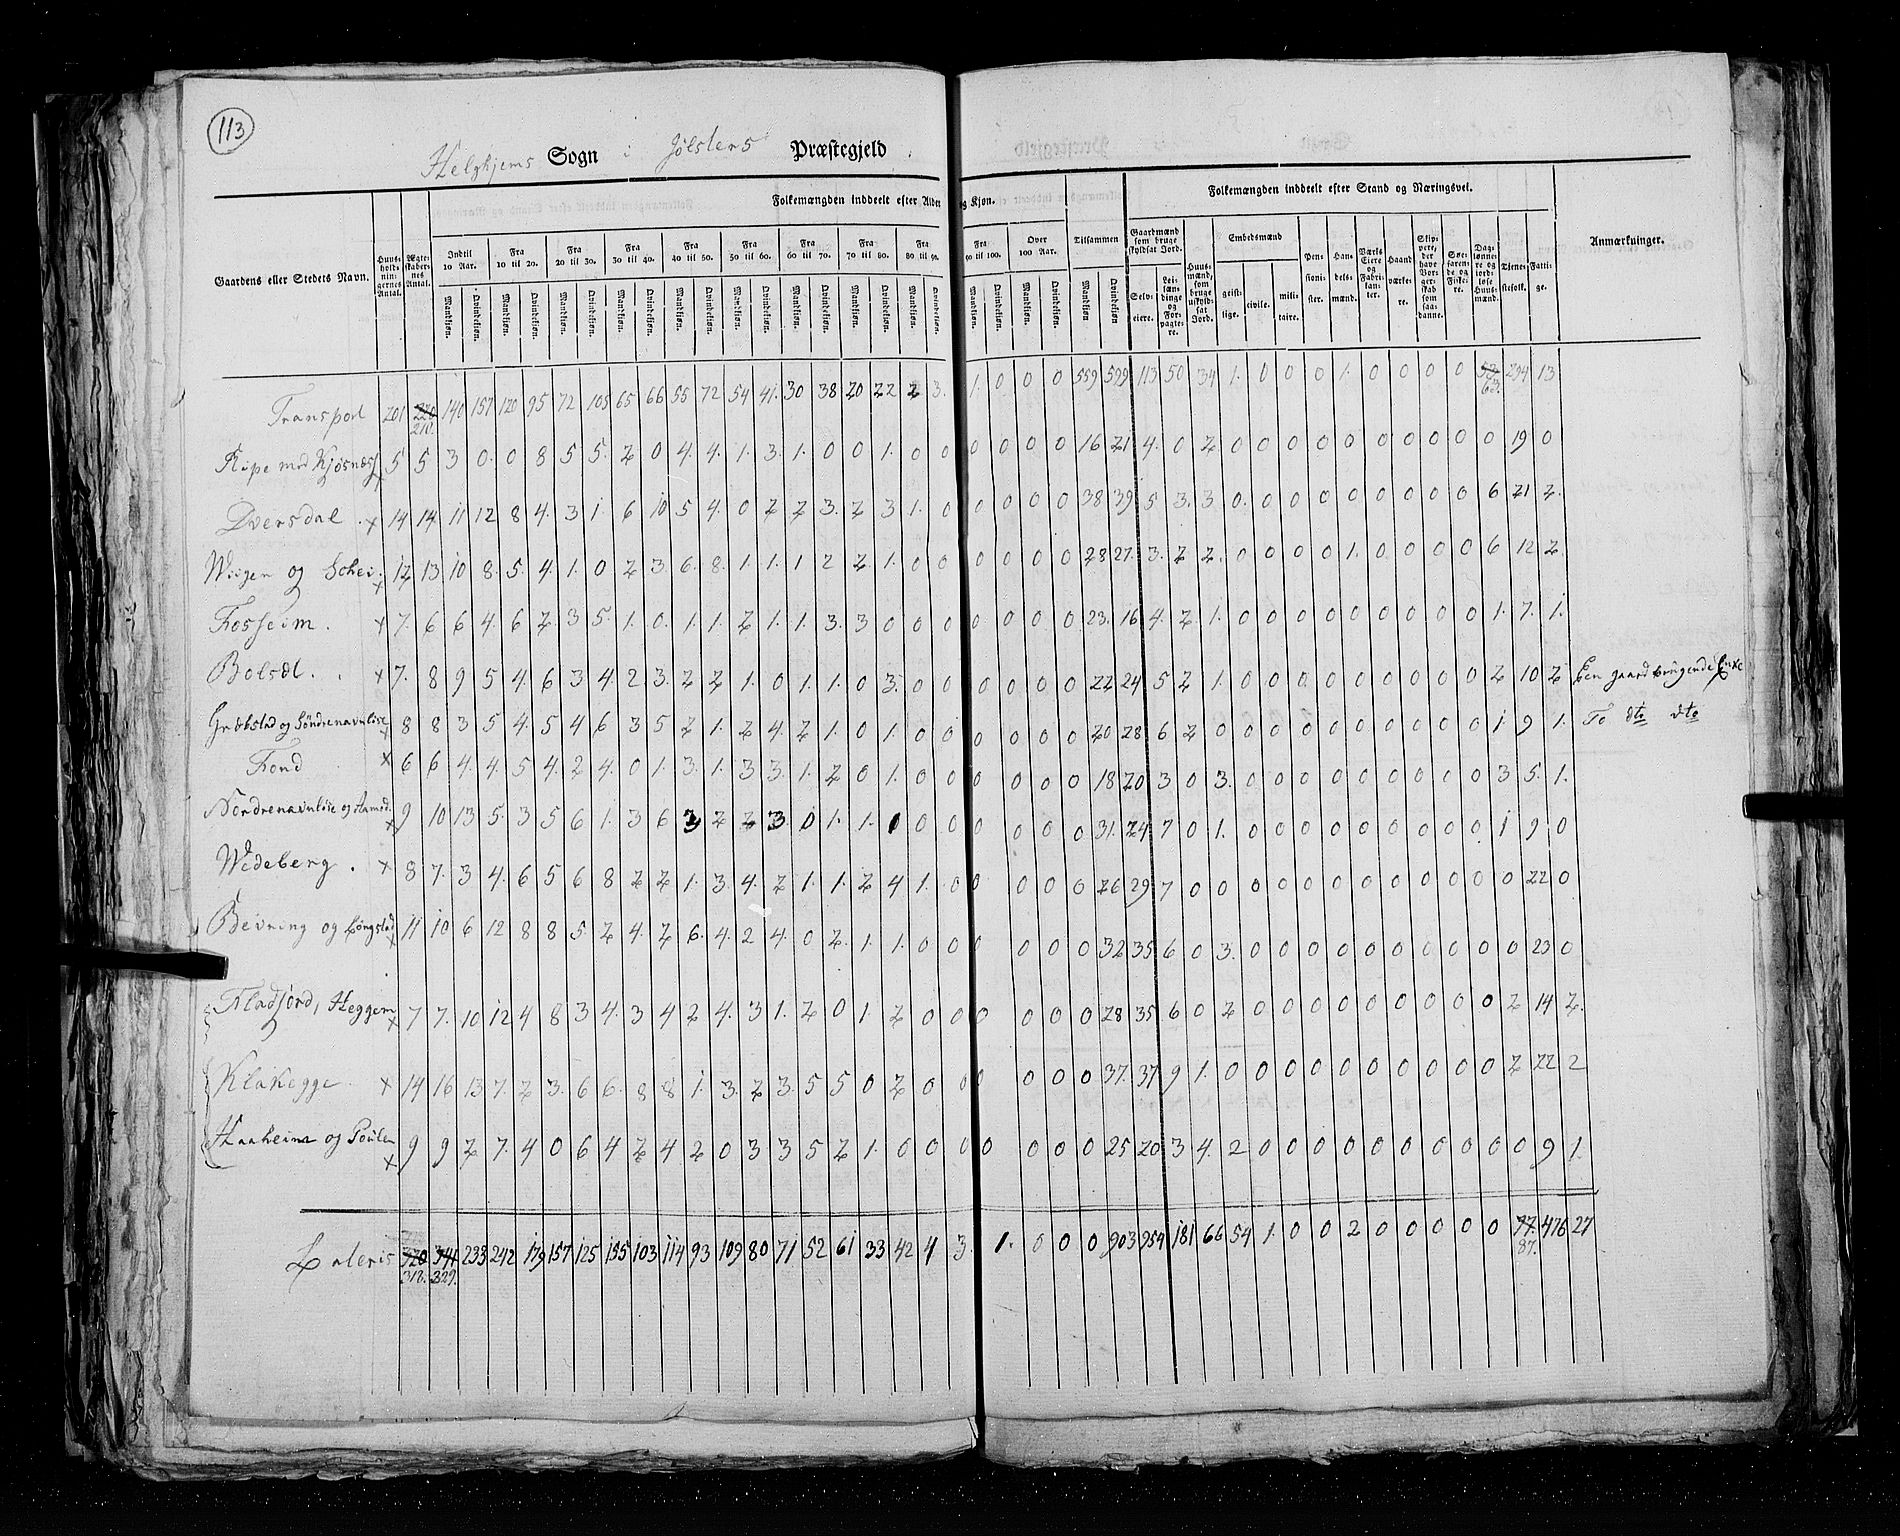 113
Helghjems Sogn i Jølsters Præstegjeld.
Folkemængden inddeelt efter Alder og Kjøn.
Folkemængden inddeelt efter Stand og Næringsvei.
Gaardens eller Stedets Navn.
Huus-holdnin-gernes Antal.
Ægte-skaber-nes Antal.
Indtil 10 Aar.
Fra 10 til 20.
Fra 20 til 30.
Fra 30 til 40.
Fra 40 til 50.
Fra 50 til 60.
Fra 60 til 70.
Fra 70 til 80.
Fra 80 til 90.
Fra 90 til 100.
Over 100 Aar.
Tilsammen
Mandkjøn. Qvindekjøn.
Gaardmænd som bruge skyldsat Jord.
Selv-eiere.
Lei-læn-dinge og For-pagte-re.
Huus-mænd, som bruge uskyld-sat Jord.
Embedsmænd
geist-lige.
civile.
mili-taire.
Pen-sioni-ster.
Han-dels-mænd.
Værks Eiere og Fabri-kan-ter.
Haand værke-re.
Skip-pere, der have Bor-ger-skab som saa-danne.
Søe-faren-de og Fiske-re.
Dag-lønne-re og jord-løse Huus-mænd.
Tjene-stefolk.
Fatti-ge.
Anmærkninger.
Transport 201 220 210. 140 157 120 95 72 105 65 66 55 72 54 41. 30 38 20 22 2 3. 1. 0 0 0 559 599 113 50 34 1. 0 0 0 1. 0 0 0 0 53 63. 294 13
Kiøsnæss 5 5 3 0 0 8 5 5. 2 0 4. 4. 1. 3. 1. 0 0 1. 0 0 0 0 0 0 16 21 4. 0 2 0 0 0 0 0 0 0 0 0 0 19 0
Dversdal x 14 14 11 12 8 4. 3 1. 6 10 5 4. 0 2 2 3. 2 3 1. 0 0 0 0 0 38 39 5 3. 3 0. 0 0 0 0 0 0 0 0 6 21 2.
Wiigen og Schei. x 12 13 10 8. 5. 4 1. 0 2 3. 6. 8. 1. 1. 1 2 2. 1. 0 0 0 0 0 0 28 27. 3. 2 2. 0 0 0 0 1. 0 0 0 0 6 12 2
Fosseim. x 7. 6 6 4. 6 2 3 5. 1. 0. 1. 1. 2 1. 1. 3. 3 0 0 0 0 0 0 0 23. 16 4. 2. 1. 0 0 0 0 0 0 0 0 0 1. 7. 1.
Bolsæt. x 7. 8 9 5 4. 6 3 4. 2 3. 2 2 1. 0 1. 1. 0 3. 0 0 0 0 0 0 22 24 5 2 1. 0 0 0 0 0 0 0 0 0 2 10 2 Een gaardbrugende Enke
Søndrenavnløse x 8 8 3 5 4. 5 4 6 3 5 2 1. 2 4. 2 1. 0 1. 0 0 0 0 0 0 20 28 6 2 0 0 0 0 0 0 0 0 0 0 1 9 1. To dto dto
Fond x 6 6 4. 4. 5 4. 2 4. 0 1. 3. 1. 3 3. 1. 2 0 1. 0 0 0 0 0 0 18 20 3 0 3. 0 0 0 0 0 0 0 0 0 3 5. 1.
Nordrenavnløse og Aamod. x 9 10 13 5. 3 5 6 1. 3 6 3 2 2 3. 0 1. 1. 0 0 0 0 0 0 0 31. 24 7 0 1. 0 0 0 0 0 0 0 0 0 1 9 0
Wedeberg. x 8 7. 3 4. 6 5 6 8 2 2 1. 3. 4. 2 1. 1. 2 4 1. 0 0 0 0 0 26 29 7 0 0 0 0 0 0 0 0 0 0 0 0 22 0
Bevring og x 11 10 6 12 8 8 5. 2 4. 2 6. 4. 2 4. 0 2. 1. 1. 0 0 0 0 0 0 32 35 6 0 3. 0 0 0 0 0 0 0 0 0 0 23 0
Fladjord, Heggem x 7 7. 10 12 4 8 3 4. 3 4 2 4. 3 1. 2 0 1. 2 0 0 0 0 0 0 28 35 6 0 2 0 0 0 0 0 0 0 0 0 2 14 2.
Klakegge x 14 16 13 7. 2 3. 6 6. 8 8 1. 3. 2 3. 5 5 0 2 0 0 0 0 0 0 37. 37 9 1. 0 0 0 0 0 0 0 0 0 0 2 22 2
Haaheim og x 9 9 2 7. 4 0 6 4 2 4 2 0 3 3 5 2 1. 0 0 0 0 0 0 0 25 20 3 4. 2 0 0 0 0 0 0 0 0 0 0 9 1.
Lateris 320 318. 341 329. 233 242 179 157 125 155 103 114 93 109 80 71 52 61 33 42 4 3. 1. 0 0 0 903 954 181 66 54 1. 0 0 2 0 0 0 0 0 77. 87. 476 27